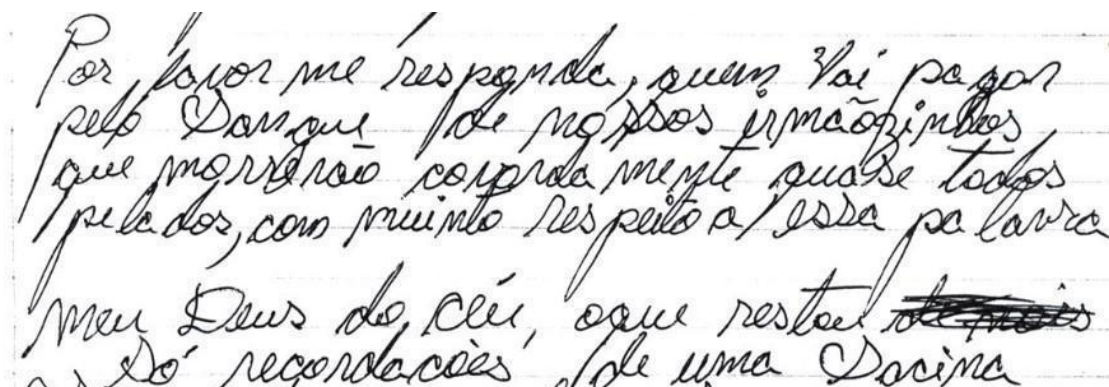 Por favor me responda, quem vai pagar
pelo Sangue de nossos irmãozinhos,
que morrerão covardamente quase todos
pelados, com muinto respeito a essa palavra
meu Deus do céu, oque restou
Só recordações de uma